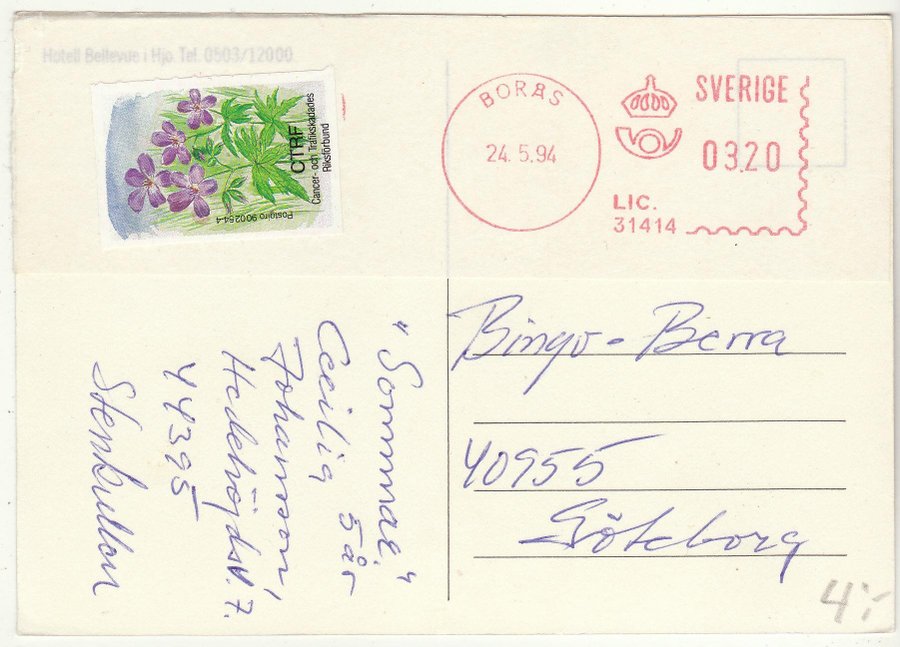 Hotell Bellevue i Hjo. Tel. 0503/12000
CTRF
Cancer- och Trafikskadades
Riksförbund
Postgiro 900254-4
BORÅS
24.5.94
SVERIGE
0320
LIC.
31414
"Sommar."
Cecilia 5 år
Johansson,
Hedehöjdsv. 7.
44395
Stenkullen
Bingo-Berra
40955
Göteborg
4:-